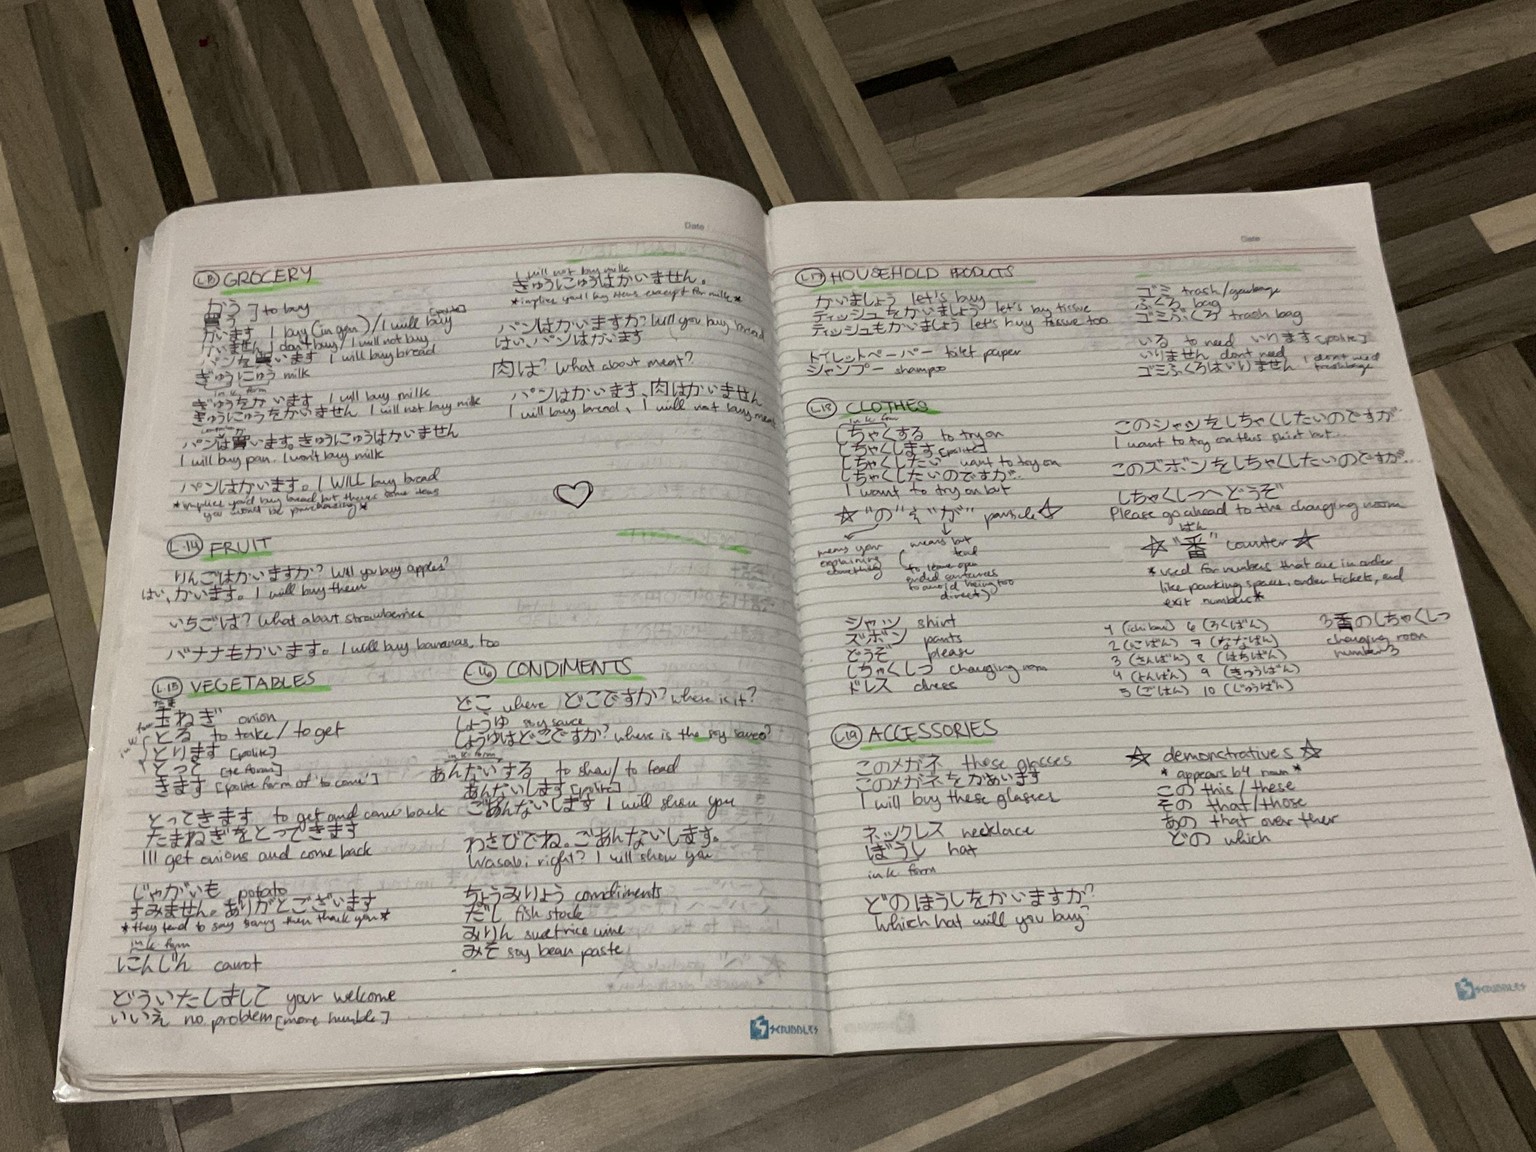 Date
L13 GROCERY
かう ] to buy
買う
かいます I buy (in gen) / I will buy [polite]
かいません I don't buy / I will not buy
パンを買います I will buy bread
ぎゅうにゅう milk
in k form
ぎゅうをかいます I will buy milk
ぎゅうにゅうをかいません I will not buy milk
パンは買います。ぎゅうにゅうはかいません
I will buy pan. I won't buy milk
パンはかいます。 I WILL buy bread
*implies you'd buy bread but there's some items
you won't be purchasing*
L.14 FRUIT
りんごはかいますか? Will you buy apples?
はい、かいます。 I will buy them
いちごは? What about strawberries
バナナもかいます。 I will buy bananas, too
L.15 VEGETABLES
たま
玉ねぎ onion
とる to take / to get
in k form
とります [polite]
とって [te form]
きます [polite form of 'to come']
とってきます to get and come back
たまねぎをとってきます
I'll get onions and come back
じゃがいも potato
すみません。ありがとございます
*they tend to say sorry then thank you*
in k form
にんじん carrot
どういたしまして your welcome
いいえ no problem [more humble]
I will not buy milk
ぎゅうにゅうはかいません。
*implies you'll buy items except for milk*
パンはかいますか? Will you buy bread
はい、パンはかいます
肉は? What about meat?
パンはかいます、肉はかいません
I will buy bread, I will not buy meat
L.16 CONDIMENTS
どこ where どこですか? where is it?
しょうゆ soy sauce
しょうゆはどこですか? where is the soy sauce?
in k form
あんないする to show / to lead
あんないします [polite]
ごあんないします I will show you
わさびでね。ごあんないします。
Wasabi right? I will show you
ちょうみりょう condiments
だし fish stock
みりん sweet rice wine
みそ soy bean paste
SCRIBBLES
Date
L17 HOUSEHOLD PRODUCTS
かいましょう let's buy
ティッシュをかいましょう let's buy tissue
ティッシュもかいましょう let's buy tissue too
トイレットペーパー toilet paper
シャンプー shampoo
ゴミ trash/garbage
ふくろ bag
ゴミぶくろ trash bag
いる to need いります [polite]
いりません dont need
ゴミふくろはいりません I don't need
trashbags
L.18 CLOTHES
in k form
しちゃくする to try on
しちゃくします [polite]
しちゃくしたい want to try on
しちゃくしたいのですが..
I want to try on but
☆ "の" & "が" particle ☆
means your
explaining
something
means but
and
to leave open
ended sentences
to avoid being too
direct)
シャツ shirt
ズボン pants
どうぞ please
しちゃくしつ changing room
ドレス dress
このシャツをしちゃくしたいのですが
I want to try on this shirt but..
このズボンをしちゃくしたいのですが..
しちゃくしつへどうぞ
Please go ahead to the changing room
ばん
☆ "番" counter ☆
*used for numbers that are in order
like parking spaces, order tickets, and
exit numbers*
1 (ichiban) 6 (ろくばん)
2 (にばん) 7 (ななばん)
3 (さんばん) 8 (はちばん)
4 (よんばん) 9 (きゅうばん)
5 (ごばん) 10 (じゅうばん)
3番のしちゃくしつ
changing room
number 3
L19 ACCESSORIES
このメガネ these glasses
このメガネをかあいます
I will buy these glasses
ネックレス necklace
ぼうし hat
in k form
どのぼうしをかいますか?
Which hat will you buy?
☆ demonstratives ☆
*appears b4 noun*
この this/these
その that/those
あの that over ther
どの which
SCRIBBLES